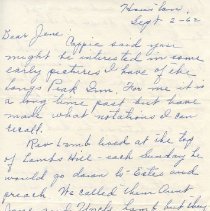 Sept 2-62
Dear Jane,
Pappie said you
might be interested in some
early pictures I have of the
Longs Peak Inn. For me it is
a long time past but have
made what notations I can
recall.
Rev Lamb lived at the top
of Lambs Hill - each Sunday he
would go down to Estes and
preach. We called them Aunt
Jane and Uncle Lamb but they